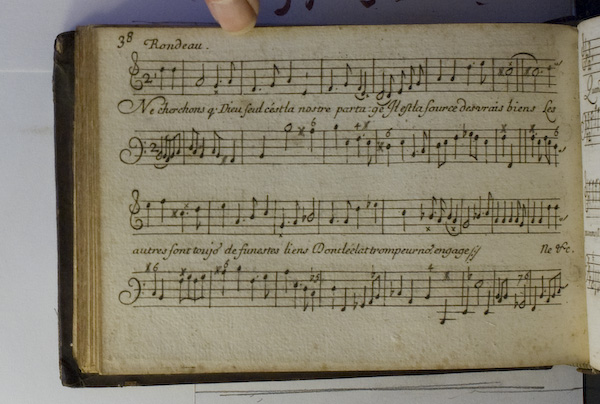 38 Rondeau.
Ne cherchons q. Dieu seul c'est la nostre parta: ge Il est la source des vrais biens Les
autres sont toujo.r de funestes liens Dont l'eclat trompeur no.s engage
Ne &c.